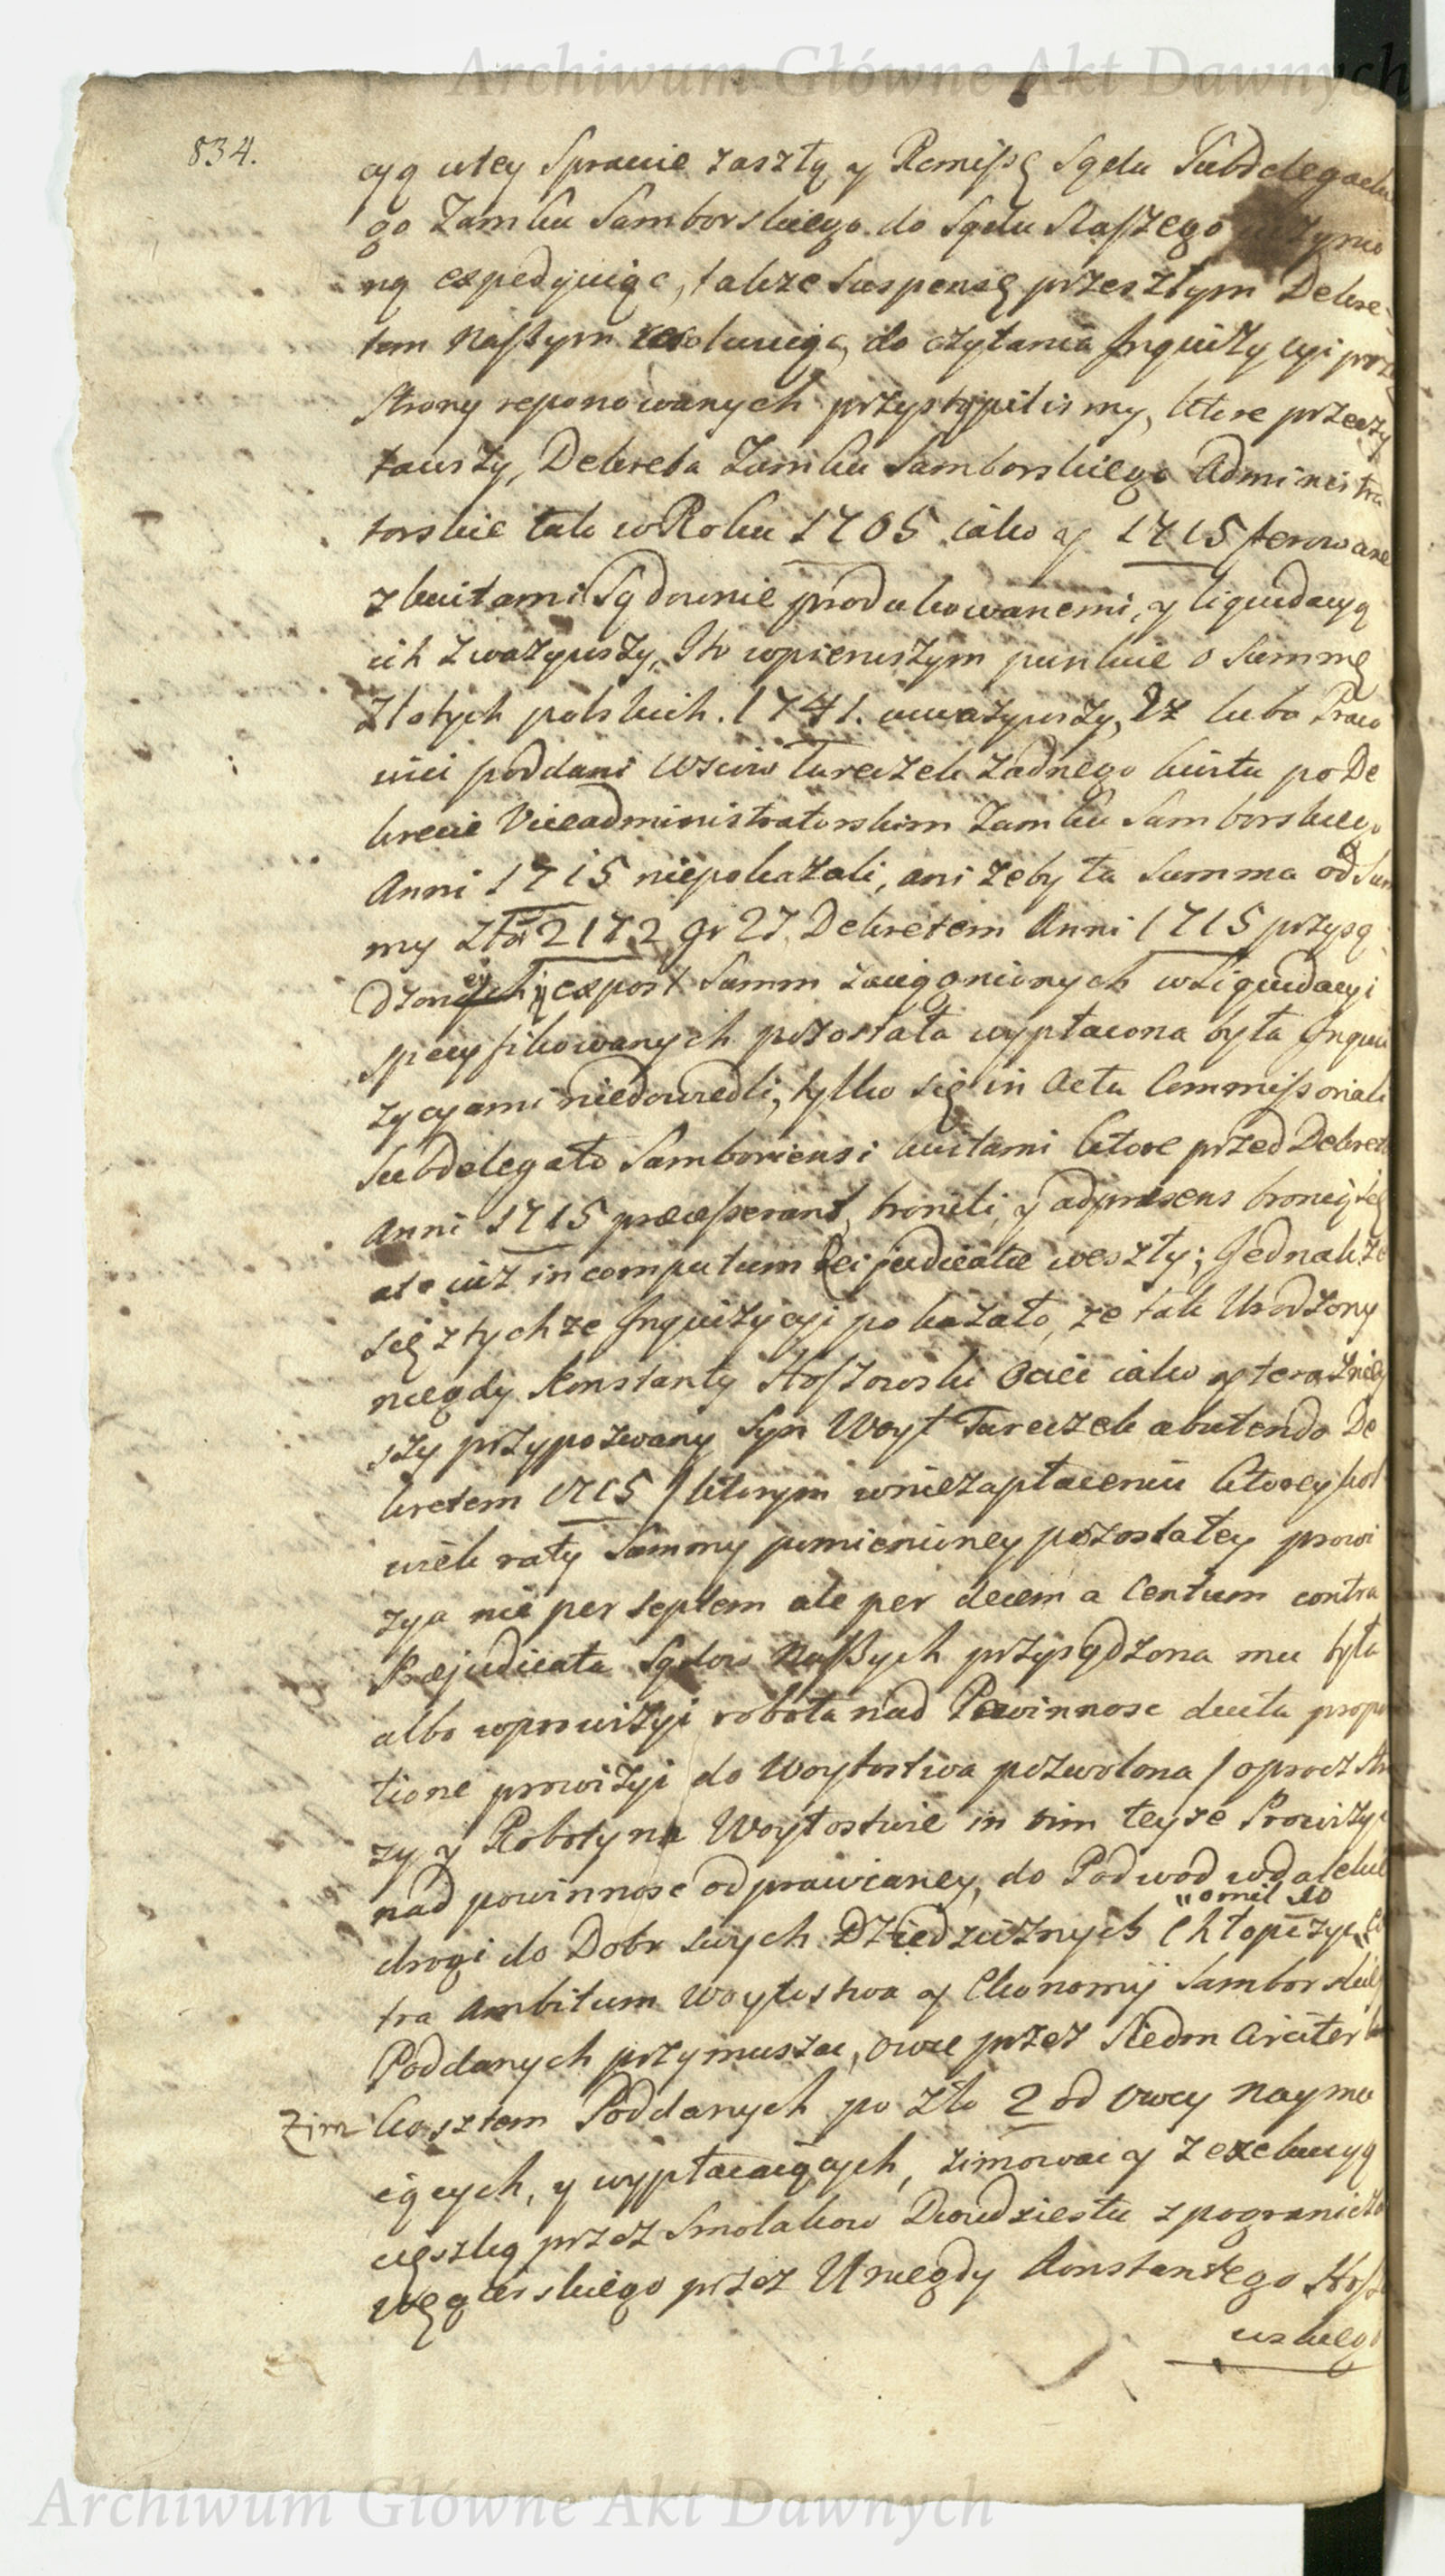 Archiwum Główne Akt Dawnych
834.
cyą wtey Sprawie zaszłą y Remissę Sądu Subdelegacki
go Zamku Samborskiego do Sądu Naszego uczynio
ną expedyuiąc, także Suspensę przeszłym Dekre-
tem Naszym rezolwuiąc, do czytania Inquizycyi przez
Strony reponowanych przystąpilismy, ktore przeczy
tawszy, Dekreta Zamku Samborskiego Administra
torskie tak w Roku 1705 iako y 1715 ferowane
z kwitami Sądownie produkowanemi, y liquidacyą
ich zwazywszy, Ito wpierwszym punkcie o Summę
Złotych polskich. 1741. uwazywszy, Iz lubo Praco
wici poddani Wsiow Tureczek zadnego kwitu po De
krecie Viceadministratorskim Zamku Samborskiego
Anni 1715 niepokazali, ani zeby ta Summa od Sum
my Złł 2172 gr 27 Dekretem Anni 1715 przysą
dzoney y expost Summ zaciągnionych w Liquidacyi
specyfikowanych pozostała wypłacona była Inqui
zycyami niedowiedli, tylko się in Actu Commissoriali
Subdelegato Samboriensi kwitami ktore przed Dekret
Anni 1715 praecesserant, bronili, y adpraesens bronią się
ale iuz in computum Rei judicatae weszły; Jednakze
się z tychze Inquizycyi pokazało, ze tak Urodzony
niegdy Konstanty Hoszowski Ociec iako y terazniey
szy przypozwany Syn Woyt Tureczek abutendo De
kretem 1715 / ktorym wniezapłaceniu ktorey kol
wiek raty Summy pomienioney pozostałey prowi
zya nie per septem ale per decem a Centum contra
Praejudicata Sądow Naszych przysądzona mu była
albo wprowizyi robota nad Powinnosc ducta propor
tione prowizyi do Woytostwa pozwolona / oprocz Stro
zy y Roboty na Woytostwie in vim teyze Prowizyi
nad powinnosc odprawianey, do Podwod wdalekie
"o mil 10
drogi do Dobr swych Dziedzicznych Chłopczyc" Ex
tra Ambitum Woytostwa y Ekonomij Samborskiey
Poddanych przymuszac, owce przez Siedm Circiter
Zim kosztem Poddanych po Zło 2 od Owcy naymu
iących, y wypłacaiących, zimowac y z exekucyą
cięszką przez Smolakow Dwudziestu z pogranicza
Węgierskiego przez U niegdy Konstantego Hosz
owskiego
Archiwum Główne Akt Dawnych